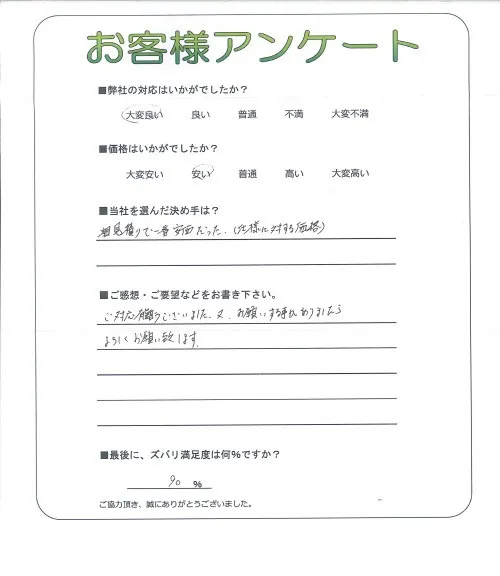 お客様アンケート
■弊社の対応はいかがでしたか？
大変良い 良い 普通 不満 大変不満
■価格はいかがでしたか？
大変安い 安い 普通 高い 大変高い
■当社を選んだ決め手は？
相見積りで一番安価だった。(仕様に対する価格)
■ご感想・ご要望などをお書き下さい。
ご対応有難うございました。又、お願いする事がありましたら
よろしくお願い致します。
■最後に、ズバリ満足度は何％ですか？
90 ％
ご協力頂き、誠にありがとうございました。